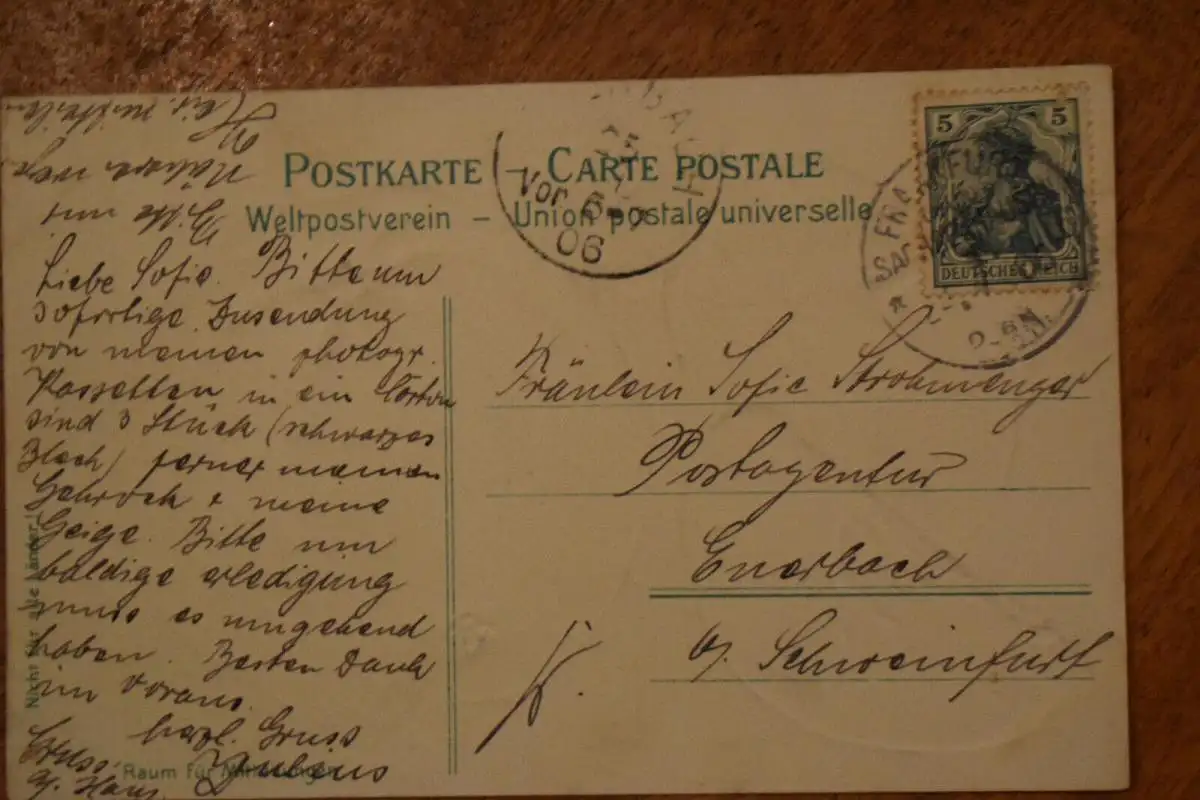 POSTKARTE – CARTE POSTALE
Weltpostverein – Union postale universelle
5 5
DEUTSCHES REICH
Vor. 6
06
Bitte um
Liebe Sofie. Bitte um
sofortige Zusendung
von meinen photogr.
Kassetten in ein Carton
sind 3 Stück (schwarzes
Blech) ferner meinen
Gehrock + meine
Geige. Bitte um
baldige erledigung
muss es umgehend
haben. Besten Dank
im Voraus.
herzl. Gruss
Julius
Gruss
a/. Haus.
Fräulein Sofie Strohmenger
Postagentur
Euerbach
b/. Schweinfurt
Nicht für alle Länder
Raum für Mitteilungen